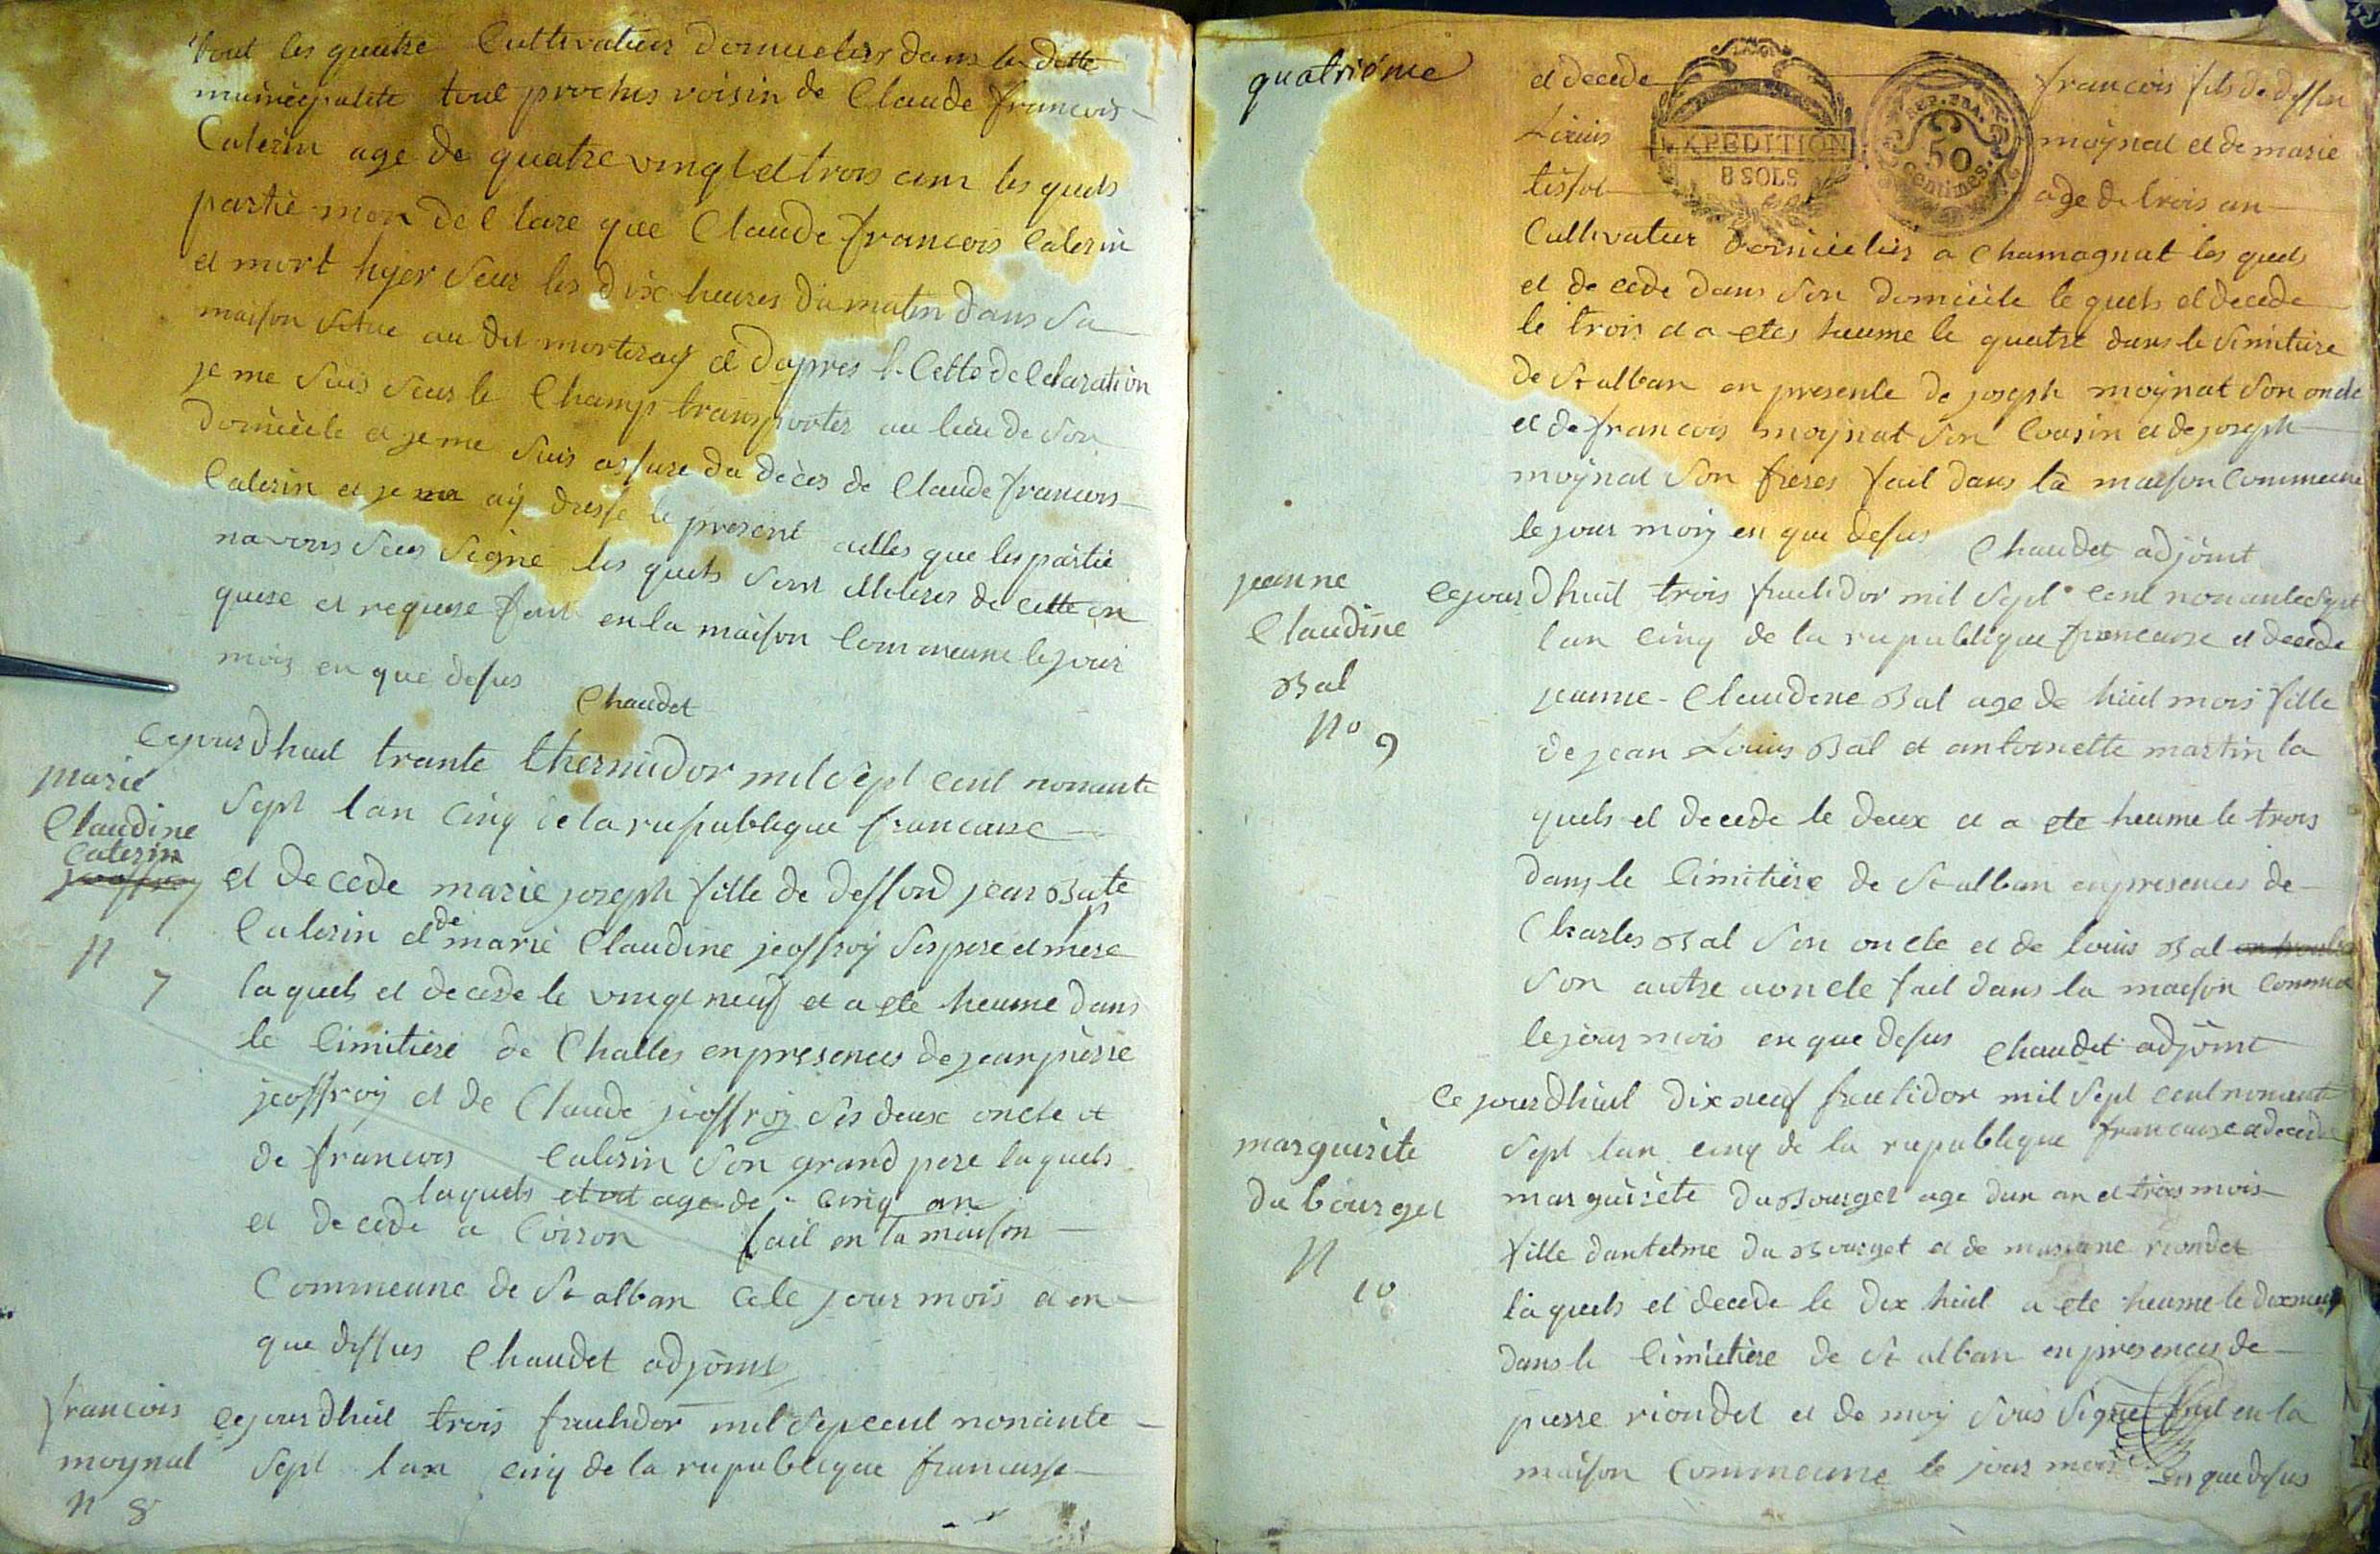 tout les quatre Cultivateur domicelier dans la ditte
municipalite tout proches voisin de Claude francois
Caterin age de quatre vingt et trois ans les quels
partie mon declare que Claude francois Caterin
et mort hyer seur les dix heures du matin dans sa
maison situe au dit morteray et dapres cette declaration
je me suis seur le Champ transporter au lieu de son
domicile et je me suis assure du déces de Claude francois
Caterin et je ay dresse le present que les partie
navons seus signe les quels sont illiteres de cette en
quise et requise fait en la maison Commeune le jour
mois en que desus
Chaudet
marie
Claudine
Caterin
jeoffroy
N 7
Cejourdhuit trante thermidor mil sept cent nonante
sept lan cinq de la rupublique francaise
et decede marie joseph fille de deffond jean Bate
Caterin et de marie Claudine jeoffroy ses pere et mere
laquels et decede le vingt neuf et a ete heume dans
le Cimitiere de Challes en presences de jean pierre
jeoffroy et de Claude jeoffroy ses deux oncle et
de francois Caterin son grand pere laquels
laquels etoit age de cinq an
et decede a Coison fait en la maison
Commeune de St alban cele jour mois et en
que dessus Chaudet adjoint
francois
moynat
N 8
Cejourdhuit trois fructidor mil sep cent nonante
sept lan cinq de la rupublique francaisse
quatriéme
et decede francois fils de deffon
Louis moynat et de marie
tissot age de trois an
EXPEDITION
8 SOLS
REP. FRA.
50
centimes
Cultivateur domicelier a Chamagnat les quels
et decede dans son domicile le quels et decede
le trois et a etes heume le quatre dans le Simitiere
de St alban en presente de joseph moynat son oncle
et de francois moynat son Cousin et de joseph
moynat son freres fait dans la maison Commeune
le jour mois en que desus Chaudet adjoint
jeanne
Claudine
Bal
No 9
Cejourdhuit trois fructidor mil sept cent nonante sept
lan cinq de la rupublique francaise et decede
jeanne Claudine Bal age de huit mois fille
de jean Louis Bal et antoinette martin la
quels et decede le deux et a ete heume le trois
dans le Cimitiere de St alban en presences de
Charles Bal son oncle et de louis Bal
son autre aoncle fait dans la maison Commeu
le jour mois en que desus Chaudet adjoint
marguirite
du bourget
N 10
Ce jourdhuit dix neuf fructidor mil sept cent nonante
sept lan cinq de la rupublique francaise et decede
marguirite du Bourget age dun an et trois mois
fille dantelme du Bourget et de mariane riondet
laquels et decede le dix huit a ete heume le dixneuf
dans le Cimitiere de St alban en presences de
pierre riondet et de moy sous signe fait en la
maison Commeune le jour mois en que desus